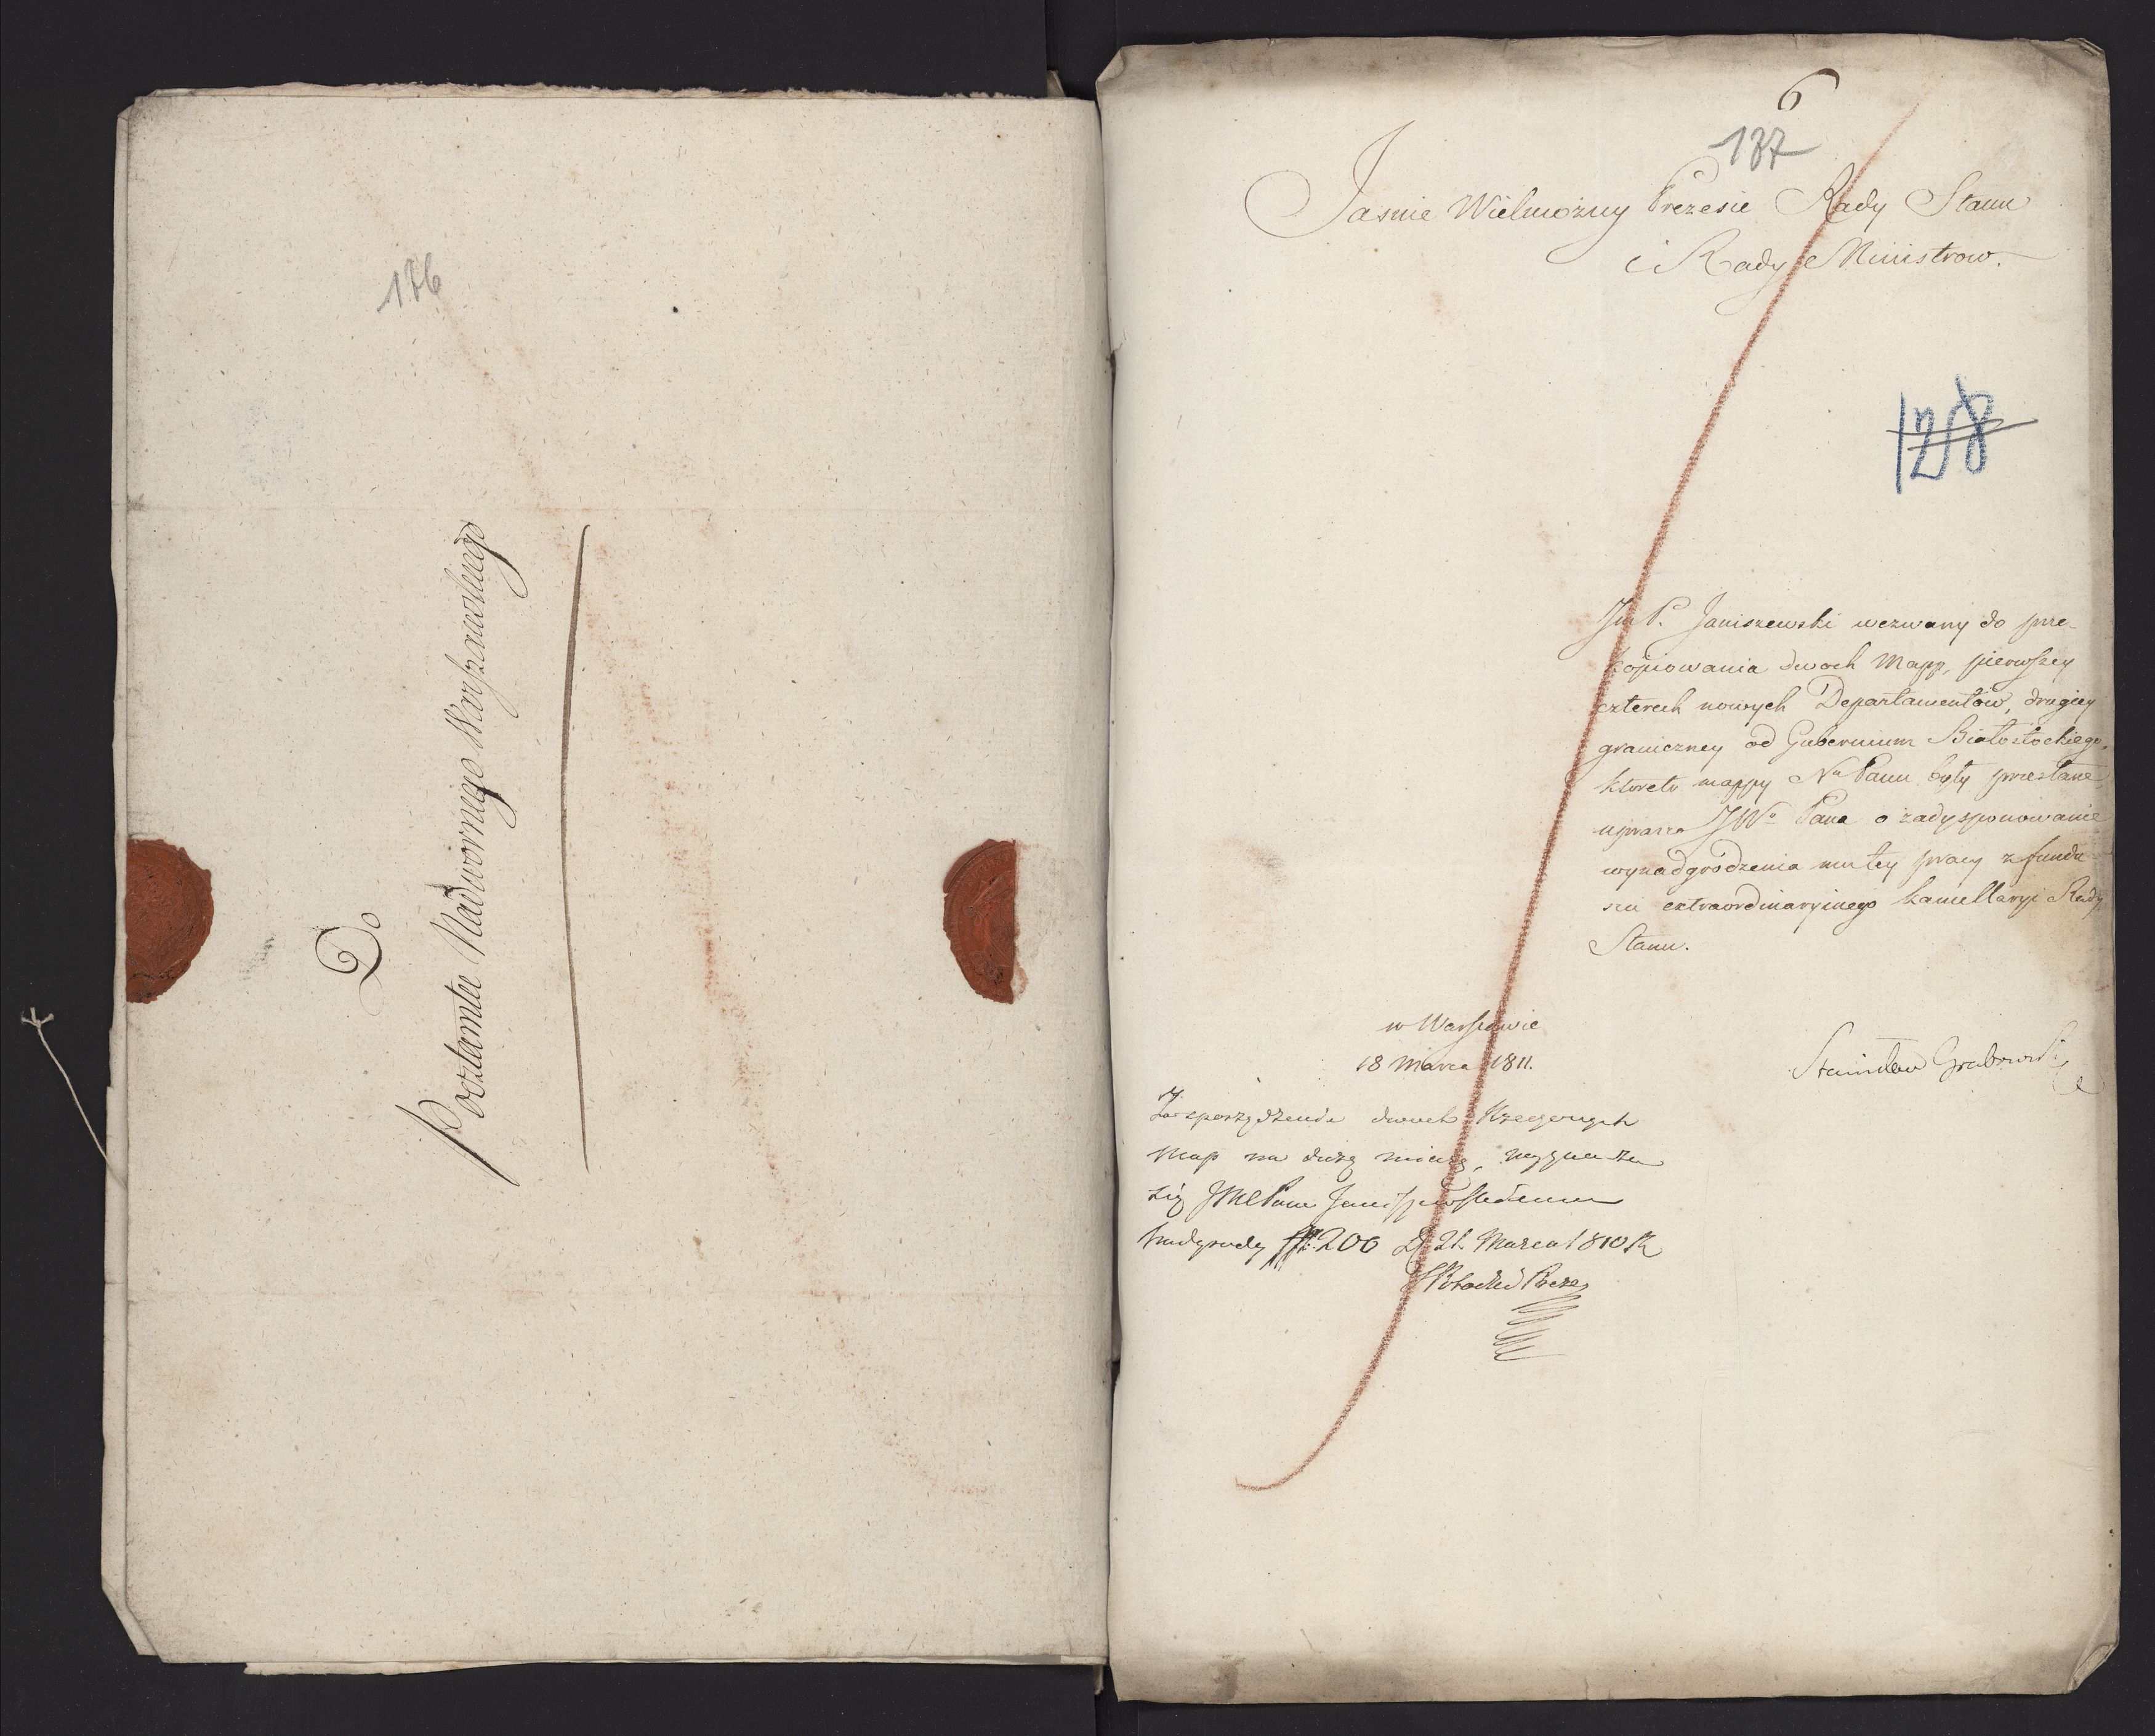 136
Do
Pocztamtu Nadwornego Warszawskiego
6
137
Jasnie Wielmożny Prezesie Rady Stanu
i Rady Ministrow.
128
Jm P. Janiszewski wezwany do prze-
kopiowania dwoch Mapp, pierwszey
czterech nowych Departamentów, drugiey
graniczney od Gubernium Białostockiego,
ktoreto mappy Nu Panu były przesłane,
uprasza JWo Pana o zadysponowanie
wynadgrodzenia mu tey pracy z fundu
szu extraordinaryinego kancellaryi Rady
Stanu.
w Warszawie
18 Marca 1811.
Stanisław Grabowski
Za sporządzenie dwuch
Map na dużą miarę, wyznacza
się JMCPanu Janiszewskiemu
Nadgrody 200 D. 21. Marca 1810
Potocki Prezes